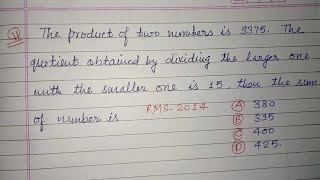 1 The product of two numbers is 3375. The
quotient obtained by dividing the larger one
with the smaller one is 15. then the sum
of number is RMS-2014 A 380
B 335
C 400
D 425.